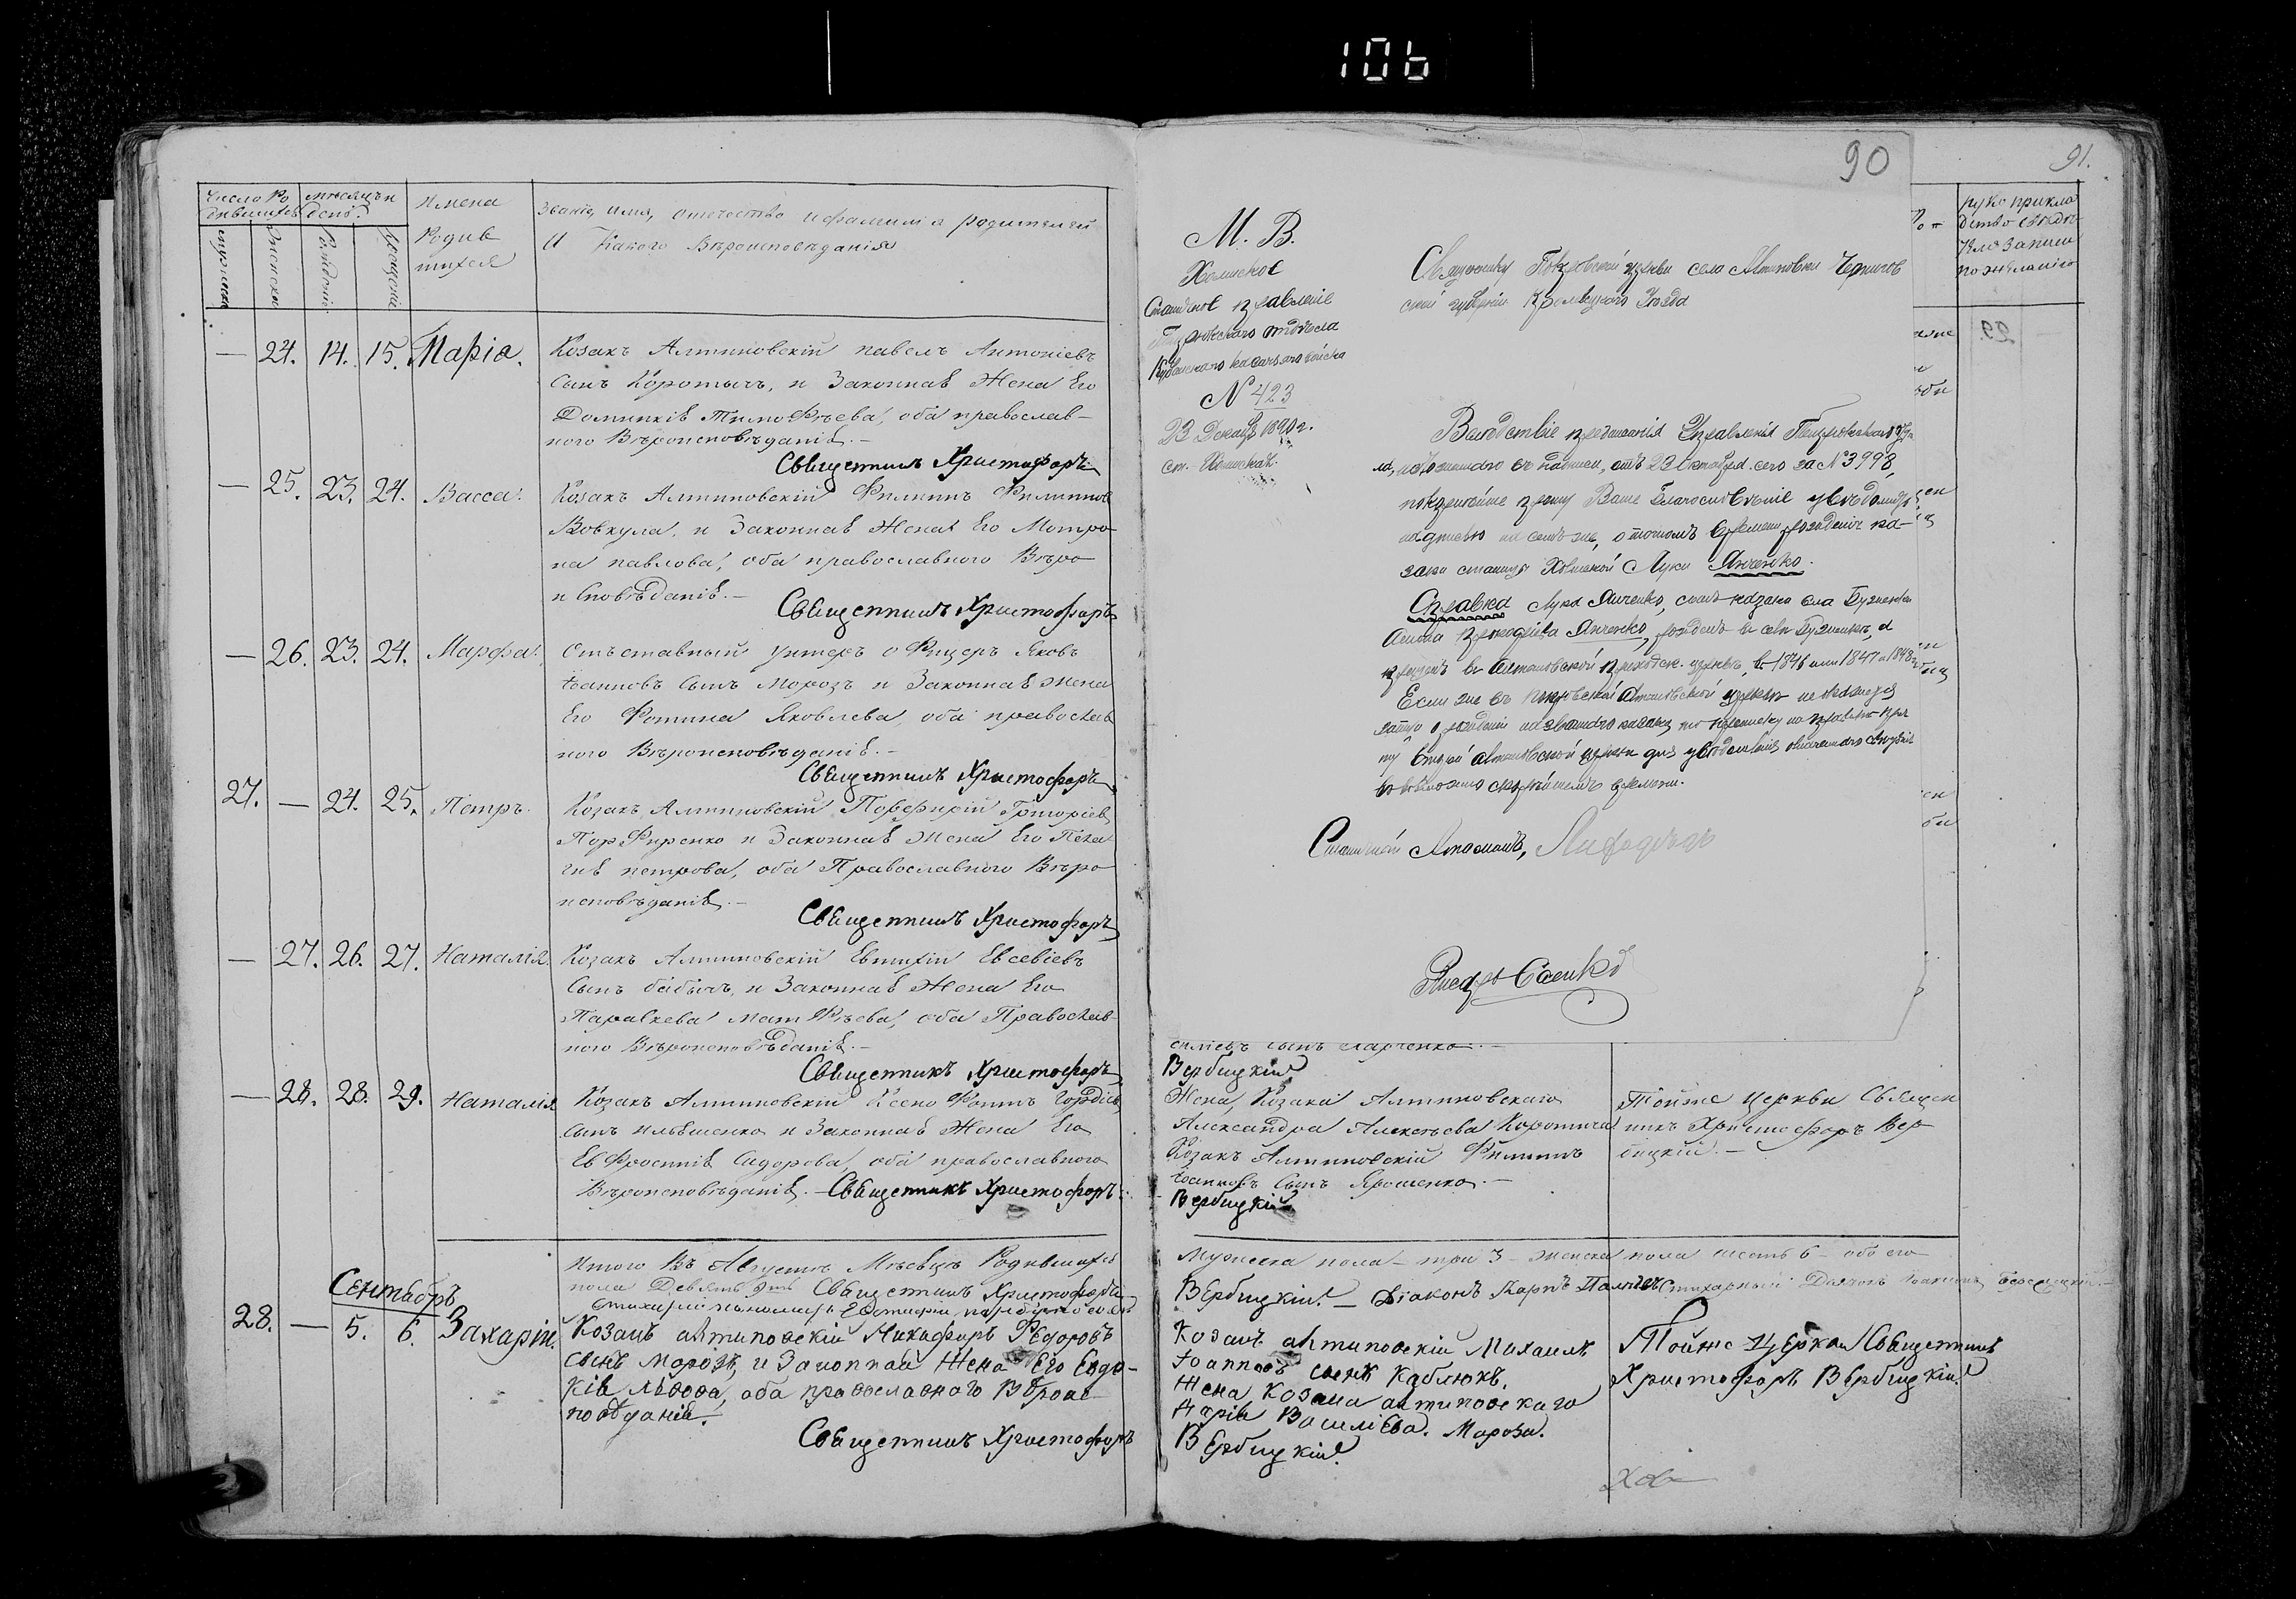 106
Число ро мѣсяцъ и
дившихся день.
Имена
Родив
шихся
мужеска
женска
рожденія
крещенія
Званіе, имя, отечество и фамилія родителей
и какого Вѣроисповѣданія
— 24. 14. 15. Марія.
Козакъ Алтиновскій павелъ Антоніевъ
Сынъ Коротычъ, и Законная Жена Его
Домникія Тимофѣева, оба православ-
ного Вѣроисповѣданія.—
Священникъ Христофоръ
— 25. 23. 24. Васса.
Козакъ Алтиновскій Филиппъ Филиппов
Вовкула, и Законная Жена Его Мотро
на павлова, оба православного Вѣро
исповѣданія.—
Священникъ Христофоръ
— 26. 23. 24. Марфа.
Отъставный унтеръ офицеръ Яковъ
Іоанновъ Сынъ Морозъ и Законная жена
Его Фотина Яковлева, оба православ
ного Вѣроисповѣданія.—
Священникъ Христофоръ
27. — 24. 25. Петръ.
Козакъ Алтиновскій Порфирій Григоріев
Порфиренко и Законная Жена Его Пела
гія петрова, оба Православного Вѣро
исповѣданія.—
Священникъ Христофоръ
— 27. 26. 27. Наталія.
Козакъ Алтиновскій Евтихій Евсевіевъ
Сынъ бабычъ, и Законная Жена Его
Параскева матфѣева, оба Православ-
ного Вѣроисповѣданія.—
Священникъ Христофоръ
— 28. 28. 29. Наталія
Козакъ Алтиновскій Ксенофонтъ Гордіев
Сынъ ильяшенко и Законная Жена Его
Евфросинія Сидорова, оба православного
Вѣроисповѣданія.— Священникъ Христофоръ
Итого Въ Августѣ Мѣсяцѣ Родившихся
пола Девять 9ть Священникъ Христофоръ
Сентябрь
28. — 5. 6. Захарія.
Козакъ алтиновскій Никифоръ Федоровъ
сынъ морозъ, и Законная Жена Его Евдо-
кія львова, оба православного Вѣроис
повѣданія.
Священникъ Христофоръ
90
М. В.
Холмское
Станичное правленіе
отдѣла
Кубанскаго казачьяго войска
N 423
23 Декабр 1890 г.
ст. Холмская.
Священнику Покровской церкви села Алтиновки Чернигов
ской губерніи Кролевецкаго Уѣзда
Вслѣдствіе предписанія Управленія
отъ 23 Октября сего за № 3998,
покорнѣйше прошу Ваше Благословеніе увѣдомить
надписью на семъ же, о точномъ времени рожденія ка-
зака станицы Холмской Луки Янченко.
Справка Лука Янченко, сынъ казака села
Янченко, рожденъ въ селѣ и
крещенъ въ Алтиновской приходск. церкви, въ 1846 или 1847 и 1848
Если же въ покровской Алтиновской церкви не окажется
записи о рожденіи названнаго казака, то переписку направить прич
ту второй Алтиновской церкви для увѣдомленія означеннаго
въ возможно скорѣйшемъ времени.
Станичный Атаманъ,
Писарь
91.
руко прикла
дство свѣдѣ-
теле записи
по желанію
сынъ Марченко.—
Вербицкій
Жена Козака Алтиновскаго
Александра Алексѣева Коротыча
Козакъ Алтиновскій Филиппъ
Іоанновъ Сынъ Ярошенко.—
Вербицкій
Тойже Церкви Священ
никъ Христофоръ Вер
бицкій.—
Мужеска пола — три 3 — женска пола шесть 6 — обоего
Вербицкій.— Діаконъ Карпъ
Козакъ алтиновскій Михаилъ
Іоанновъ сынъ Каблюкъ,
Жена Козака алтиновскаго
Дарія Василіева Мороза.
Вербицкій
Тойже Церкви Священникъ
Христофоръ Вербицкій